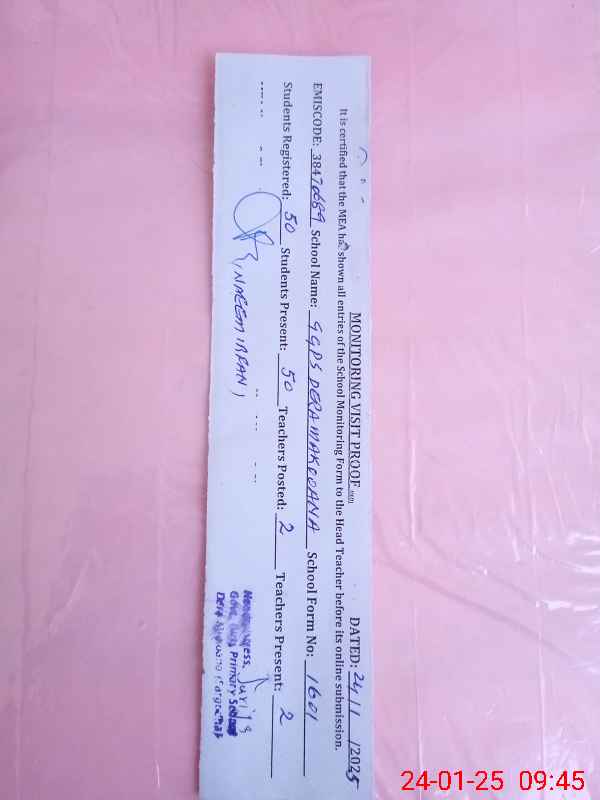 MONITORING VISIT PROOF DATED: 24/1/2025
It is certified that the MEA has shown all entries of the School Monitoring Form to the Head Teacher before its online submission.
EMISCODE: School Name: GGPS DERA MAKOOANA School Form No: 1601
Students Registered: 50 Students Present: 50 Teachers Posted: 2 Teachers Present: 2
(NAEEM IRFAN)
Primary School
24-01-25 09:45